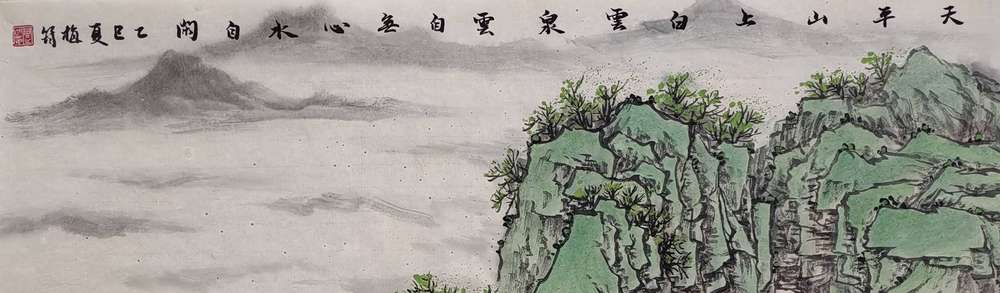 天平山上白雲泉雲自無心水自閑 乙巳夏梅